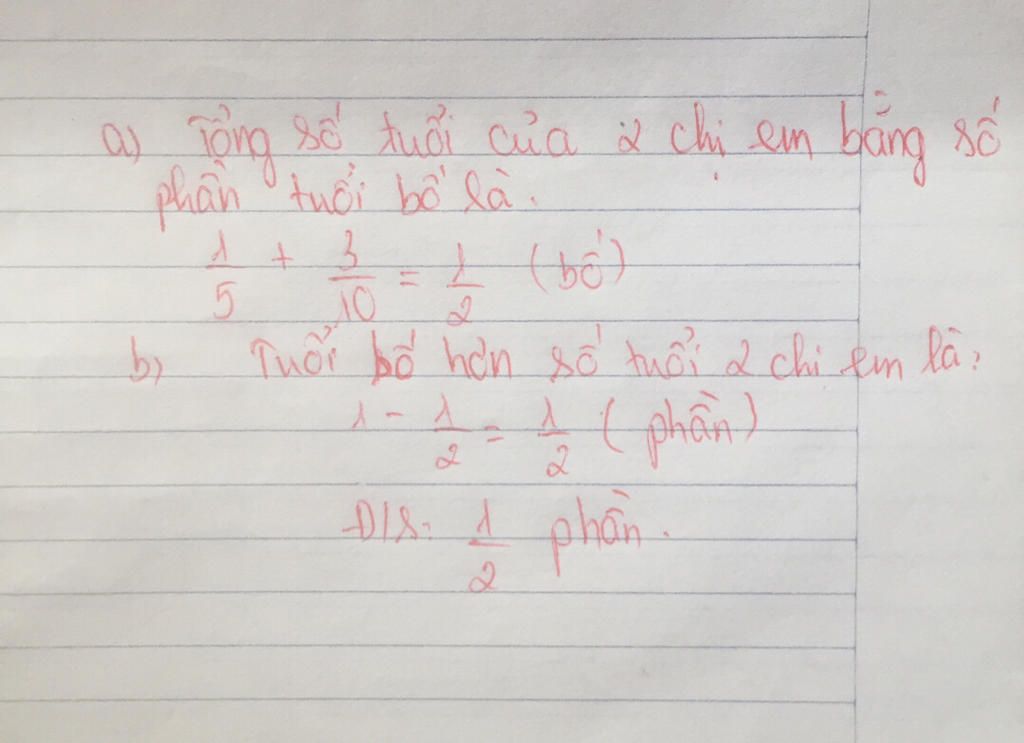 a) Tổng số tuổi của 2 chị em bằng số
phần tuổi bố là.
1/5 + 3/10 = 1/2 (bố)
b) Tuổi bố hơn số tuổi 2 chi em là:
1 - 1/2 = 1/2 (phần)
Đ/S: 1/2 phần.